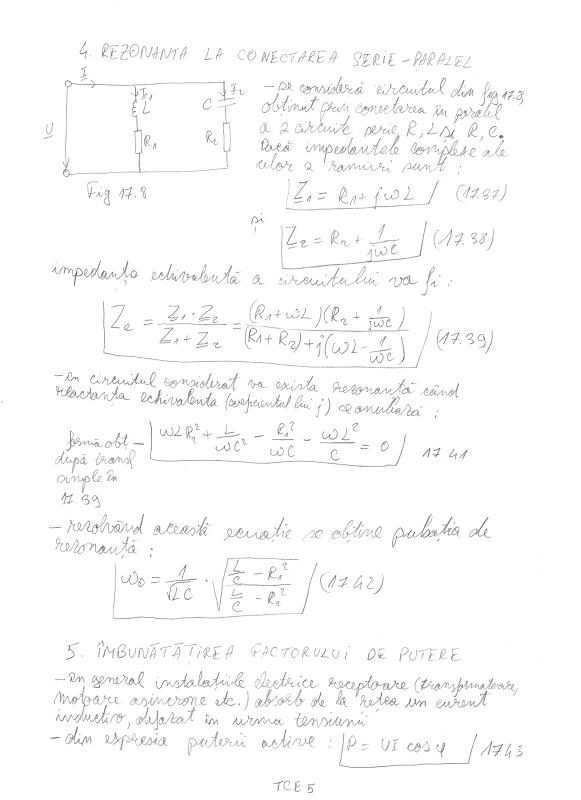 4. REZONANTA LA CONECTAREA SERIE-PARALEL
I
I1
I2
L
C
U
R1
R2
Fig 17.8
- se consideră circuitul din fig 17.8,
obtinut prin conectarea în paralel
a 2 circuite serie R, L și R, C.
Dacă impedantele complexe ale
celor 2 ramuri sunt :
Z1 = R1 + jωL (17.37)
și
Z2 = R2 + 1/jωC (17.38)
impedanța echivalentă a circuitului va fi :
Ze = Z1 · Z2 / Z1 + Z2 = (R1 + ωL)(R2 + 1/jωC) / (R1 + R2) + j(ωL - 1/ωC) (17.39)
- în circuitul considerat va exista rezonantă când
reactanta echivalenta (coeficientul lui j) se anulează :
formă obt -
după transf
simple în
17.39
ωLR2² + L/ωC² - R1²/ωC - ωL²/C = 0 17 41
- rezolvând această ecuatie se obține pulsația de
rezonantă :
ω0 = 1/√LC · √(L/C - R1² / L/C - R2²) (17.42)
5. ÎMBUNĂTĂȚIREA FACTORULUI DE PUTERE
- în general instalațiile electrice receptoare (transformatoare,
motoare asincrone etc.) absorb de la retea un curent
inductiv, defazat în urma tensiunii
- din expresia puterii active : P = UI cos φ 17.43
TCE 5